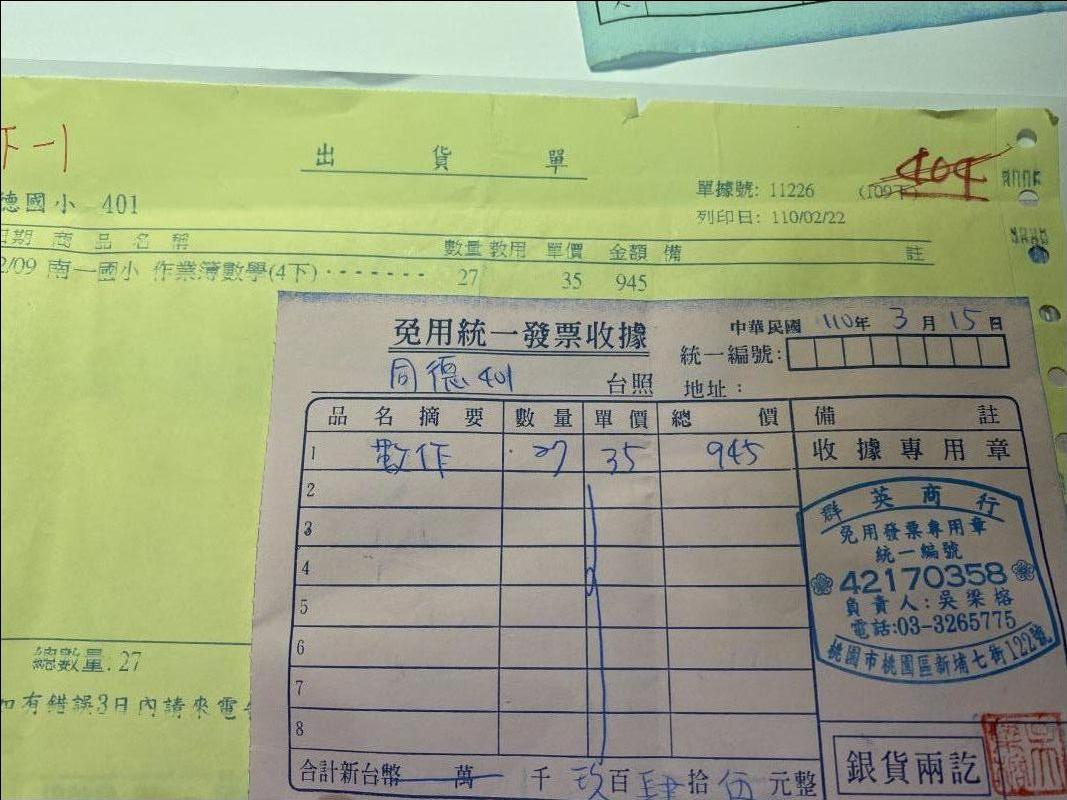 下-1
出貨單
404
單據號: 11226 (109下)
德國小 401
列印日: 110/02/22
日期 商品名稱 數量 教用 單價 金額 備註
2/09 南一國小 作業簿數學(4下)‧‧‧‧‧‧‧ 27 35 945
免用統一發票收據
中華民國 110年 3月 15日
統一編號:
同德401 台照 地址:
品名摘要 數量 單價 總價 備註
1 數作 27 35 945 收據專用章
2
3
4
5
6
7
8
群英商行
免用發票專用章
統一編號
42170358
負責人:吳梁榕
電話:03-3265775
桃園市桃園區新埔七街122號
總數量. 27
如有錯誤3日內請來電
合計新台幣 萬 千 玖百肆拾伍元整
銀貨兩訖